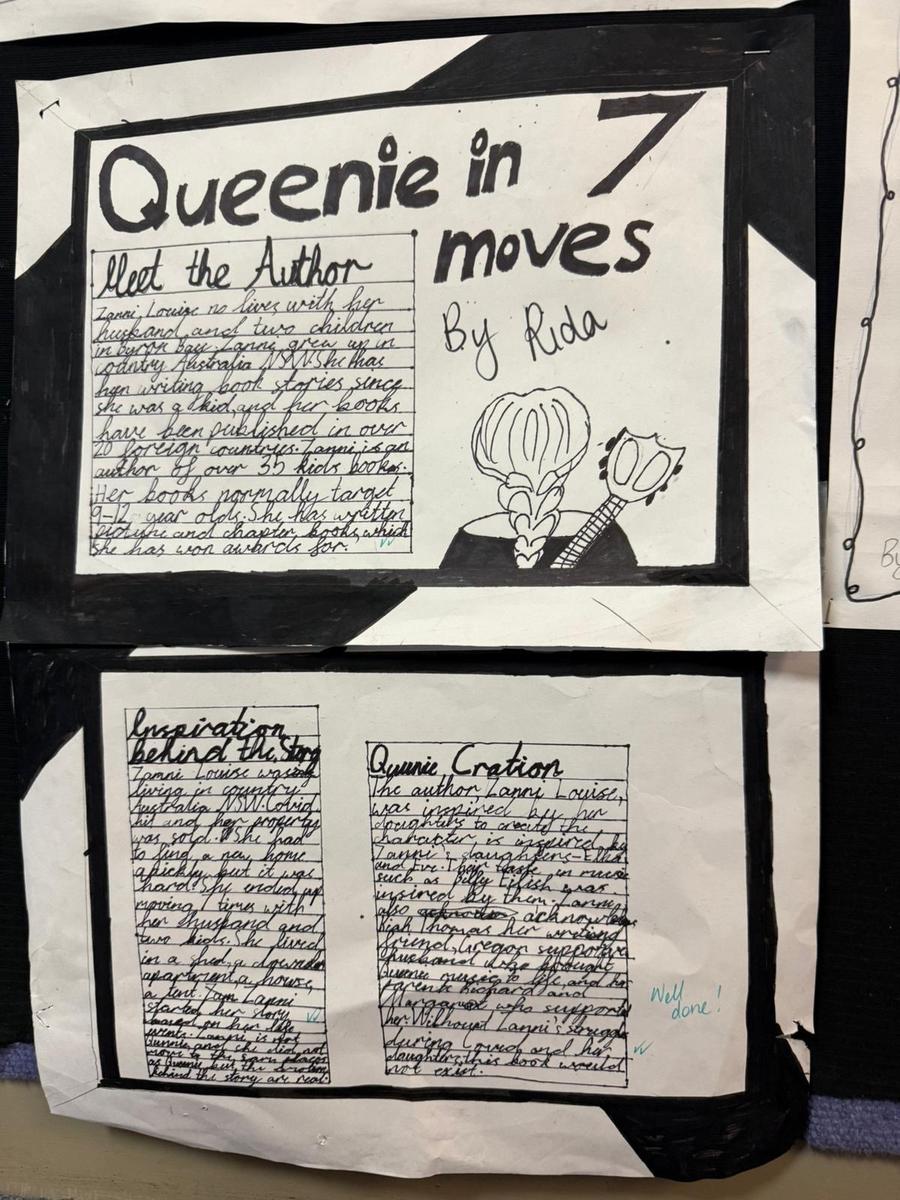 Queenie in 7
moves
By Rida
Meet the Author
Zanni Louise no lives with her
husband and two children
in byron bay. Zanni grew up in
country Australia NSW. She has
been writing book stories since
she was a kid, and her books
have been published in over
20 foreign countries. Zanni is an
author of over 35 kids books.
Her books normally target
9-12 year olds. She has written
picture and chapter books, which
she has won awards for.
Inspiration
behind the Story
Zanni Louise was
living in country
Australia NSW. Covid
hit and her property
was sold. She had
to find a new home
quickly, but it was
hard. ended up
moving 7 times with
her husband and
two kids. She lived
in a shed, a
apartment, a house,
a tent. Zanni
started her story
based on her life
events. Zanni is not
Queenie and she did not
move to the same places
as Queenie but the
behind the story are real.
Queenie Cration
The author Zanni Louise,
was inspired by her
daughters to create the
character is inspired by
Zanni's daughters-
and Eve. Their taste in music
such as Billy Eilish was
insired by them. Zanni
also acknowl
Thomas her writing
friend, Gregon supportive
husband who brought
Queenie music to life, and her
parents Richard and
Margaret who support
her. Without Zanni's struggle
during Covid and her
daughters, this book would
not exist.
Well
done!
By